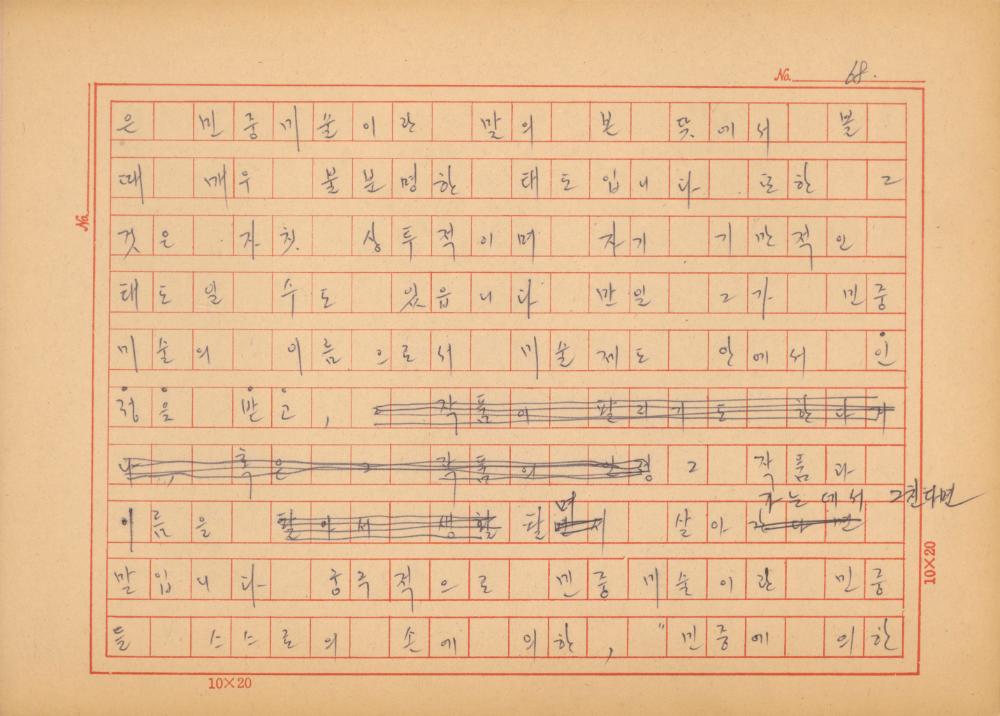 No. 68.
은 민중미술이란 말의 본 뜻에서 볼
때 매우 불분명한 태도입니다 또한 그
No.
것은 자칫 상투적이며 자기 기만적인
태도일 수도 있읍니다 만일 그가 민중
미술의 이름으로서 미술제도 안에서 인
정을 받고, 작품이 팔리기도 한다거
나, 혹은 그 작품의 안정 그 작품과
며 가는데서 그친다면
이름을 팔아서 생활 팔면서 살아간다면
말입니다 궁극적으로 민중미술이란 민중
들 스스로의 손에 의한, "민중에 의한
10×20
10×20